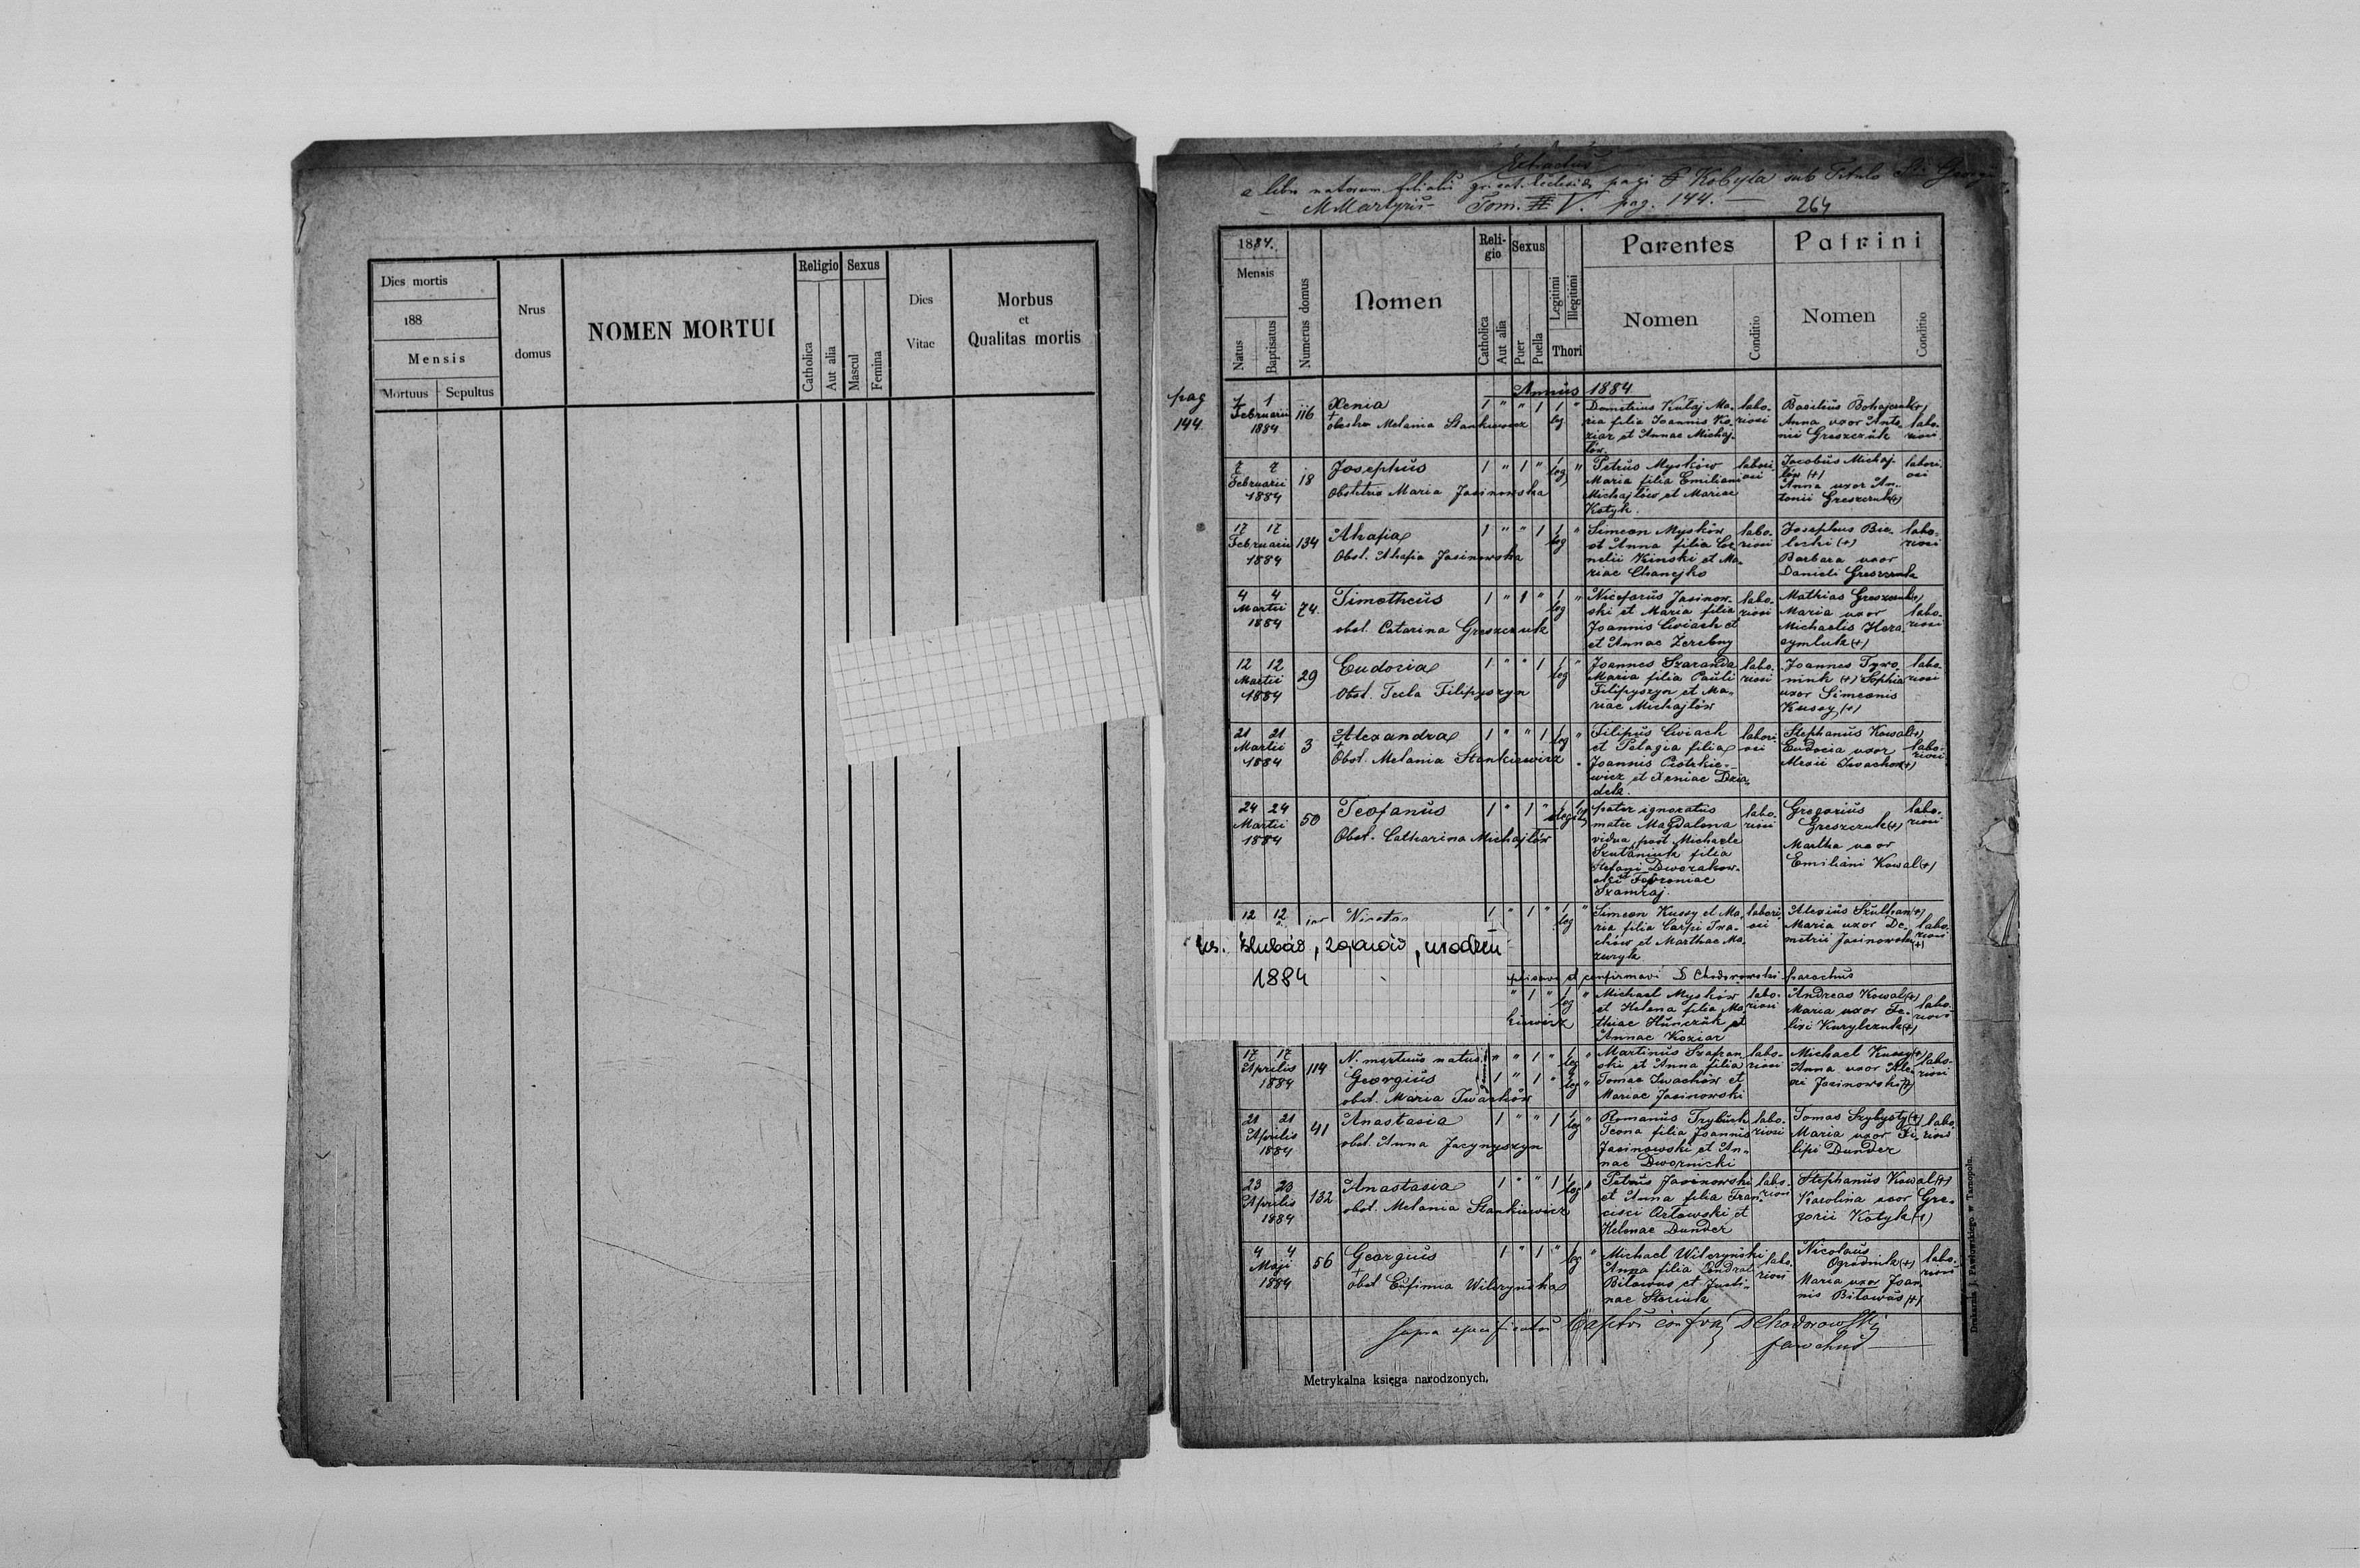 Dies mortis
188
Mensis
Mortuus Sepultus
Nrus
domus
NOMEN MORTUI
Religio
Catholica
Aut alia
Sexus
Mascul
Femina
Dies
Vitae
Morbus
et
Qualitas mortis
Extractus
a libro natorum filialis gr. cat. Ecclesiae pagi Kobyla sub Titulo St. Georgii
M Martyris Tom. V. pag. 144. 264
1884.
Mensis
Natus
Baptisatus
Numerus domus
Nomen
Religio
Catholica
Aut alia
Sexus
Puer
Puella
Legitimi
Illegitimi
Thori
Parentes
Nomen
Conditio
Patrini
Nomen
Conditio
Annus 1884
pag
144
1 1
Februarii
1884
116
Xenia
obstra Melania Stankiewicz
1 " " 1 1 "
leg
Demetrius Kułaj Ma-
ria filia Joannis Ko-
ziar et Annae Michaj-
łów.
labo-
riosi
Basilius Bohajczuk (+)
Anna uxor Anto-
nii Greszczuk
labo-
riosi
7 7
Februarii
1884
18
Josephus
Obstetrix Maria Jasinowska
1 " 1 " 1 "
leg
Petrus Myśków
Maria filia Emiliani
Michajłów et Mariae
Kotyk.
labori-
osi
Jacobus Michaj-
łów (+)
Anna uxor An-
tonii Greszczuk (+)
labori-
osi
17 17
Februarii
1884
134
Ahafia
Obst. Ahafia Jasinowska
1 " " 1 1 "
leg
Simeon Myśków
et Anna filia Cor-
nelii Kinski et Ma-
riae Chanejko
labo-
riosi
Josephus Bie-
lecki (+)
Barbara uxor
Danieli Greszczuk
labo-
riosi
4 4
Martii
1884
74.
Timotheus
obst. Catarina Greszczuk
1 " 1 " 1 "
leg
Niceforus Jasinow-
ski et Maria filia
Joannis Cwiach et
et Annae Żerebny
labo-
riosi
Mathias Greszczuk (+)
Maria uxor
Michaelis Hera-
symluk (+)
labo-
riosi
12 12
Martii
1884
29
Eudocia
Obst. Tecla Filipyszyn
1 " " 1 1 "
leg
Joannes Szaranda
Maria filia Pauli
Filipyszyn et Ma-
riae Michajłów
labo-
riosi
Joannes Tyro
niuk (+) Sophia
uxor Simeonis
Kussy (+)
labo-
riosi
21 21
Martii
1884
3
Alexandra
Obst. Melania Stankiewicz
1 " " 1 1 "
leg
Filipus Cwiach
et Pelagia filia
Joannis Piotrkie-
wicz et Xeniae Dzia-
deka.
labori-
osi
Stephanus Kowal (+)
Eudocia uxor
Alexii Iwachow (+)
labo-
riosi
24 24
Martii
1884
50
Teofanus
Obst. Catharina Michajłów
1 " 1 "
pater ignoratus
mater Magdalena
vidua post Michaele
Szutaniuk filia
Stefani Dworakow-
ski et Fewroniae
Szamraj.
labo-
riosi
Gregorius
Greszczuk (+)
Martha uxor
Emiliani Kowal (+)
labo-
riosi
12 12
1 " 1 " 1 "
leg
Simeon Kussy et Ma-
ria filia Carpi Iwa-
chów et Marthae Ma-
zuryk
labori-
osi
Alexius Szulhan (+)
Maria uxor De-
metrii Jasinowski (+)
labo-
riosi
Ks. ślubów, zgonów, urodzeń
1884
et confirmavi D Chodorowski parochus
" 1 " 1 "
leg
kiewicz
Michael Myśków
et Helena filia Ma-
thiae Hunczuk et
Annae Koziar
labo-
riosi
Andreas Kowal (+)
Maria uxor Fe-
lixi Kurylczuk (+)
labo-
riosi
17 17
Aprilis
1884
114
N. mortuus natus
Georgius
obst. Maria Iwachów
" " 1 " 1 "
leg
1 " 1 " 1 "
leg
Martinus Szafran-
ski et Anna filia
Tomae Iwachów et
Mariae Jasinowski
labo-
riosi
Michael Kussy (+)
Anna uxor Ale-
xi Jasinowski (+)
labo-
riosi
21 21
Aprilis
1884
41
Anastasia
obst. Anna Jacynyszyn
1 " " 1 1 "
leg
Romanus Trybuch
Teona filia Joannis
Jasinowski et An-
nae Dwornicki
labo-
riosi
Tomas Szybysty (+)
Maria uxor Fi-
lipi Dunder
labo-
riosi
23 23
Aprilis
1884
132
Anastasia
obst. Melania Stankiewicz
1 " " 1 1 "
leg
Petrus Jasinowski
et Anna filia Fran-
cisci Orłowski et
Helenae Dunder
labo-
riosi
Stephanus Kowal (+)
Karolina uxor Gre-
gorii Kotyk (+)
4 4
Maji
1884
56
Georgius
obst. Eufimia Wilczyńska
1 " 1 " 1 "
leg
Michael Wilczyński
Anna filia Condrat
Biłowus et Justi-
nae Storiuk
labo-
riosi
Nicolaus
Ogrodnik (+)
Maria uxor Joan-
nis Biłowus (+)
labo-
riosi
Supra specificatos Baptisi confravi DChodorowski
parochus
Metrykalna księga narodzonych.
Drukarnia J. Pawłowskiego w Tarnopolu.